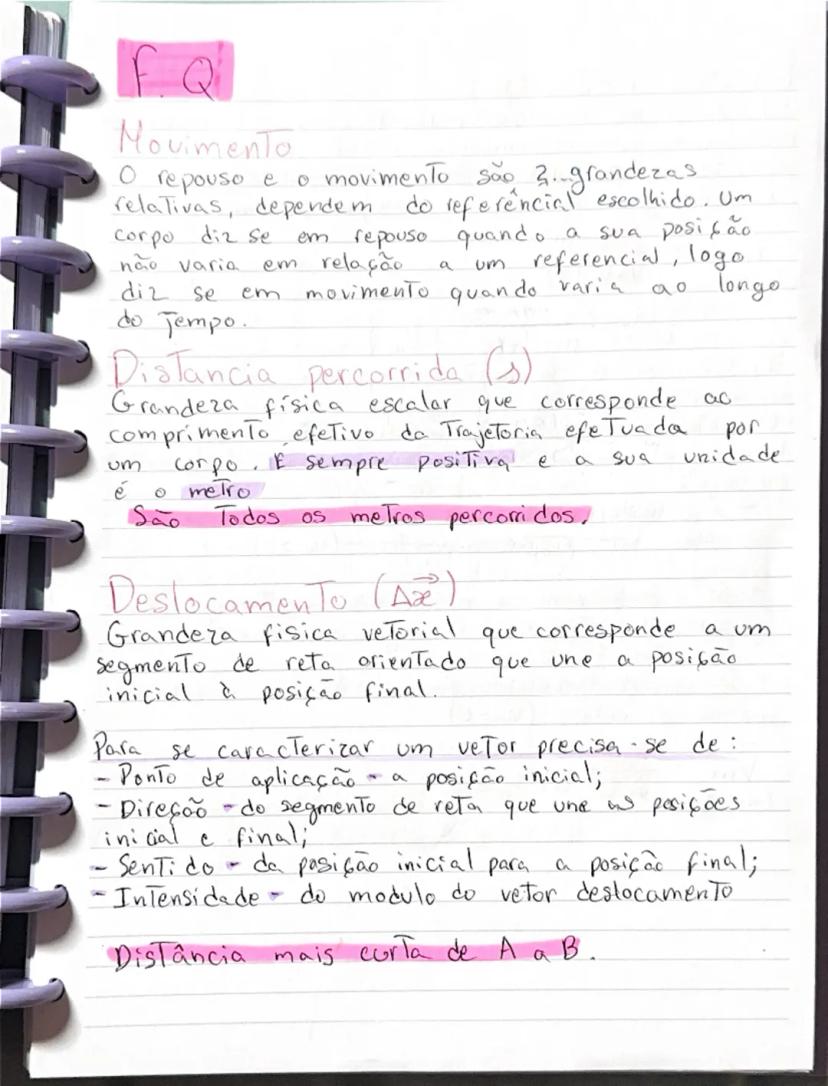 F. Q
Movimento
O repouso e o movimento são 2 grandezas
relativas, dependem do referêncial escolhido. Um
corpo diz se em repouso quando a sua posição
não varia em relação a um referencial, logo
diz se em movimento quando varia ao longo
do tempo.
Distancia percorrida (s)
Grandeza física escalar que corresponde ao
comprimento efetivo da Trajetoria efetuada por
um corpo. É sempre positiva e a sua unidade
é o metro
São Todos os metros percorridos.
Deslocamento (Δx⃗)
Grandeza física vetorial que corresponde a um
segmento de reta orientado que une a posição
inicial à posição final.
Para se caracterizar um vetor precisa-se de:
- Ponto de aplicação - a posição inicial;
- Direção - do segmento de reta que une as posições
inicial e final;
- Sentido - da posição inicial para a posição final;
- Intensidade - do modulo do vetor deslocamento
Distância mais curta de A a B.